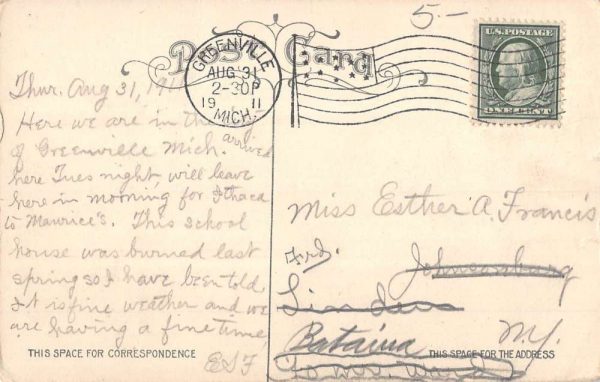 5.-
Post Card
U.S. POSTAGE
ONE CENT
GREENVILLE
AUG 31
2-30P
19 11
MICH.
Thur. Aug 31, 191
Here we are in the
of Greenville Mich.
arrived
here Tues night, will leave
here in morning for Ithaca
to Maurice's. This school
house was burned last
spring so I have been told
It is fine weather and we
are having a fine time
ESF
THIS SPACE FOR CORRESPONDENCE
Miss Esther A. Francis
Frd.
Johnsonburg
Linden
Batavia N.Y.
THIS SPACE FOR THE ADDRESS